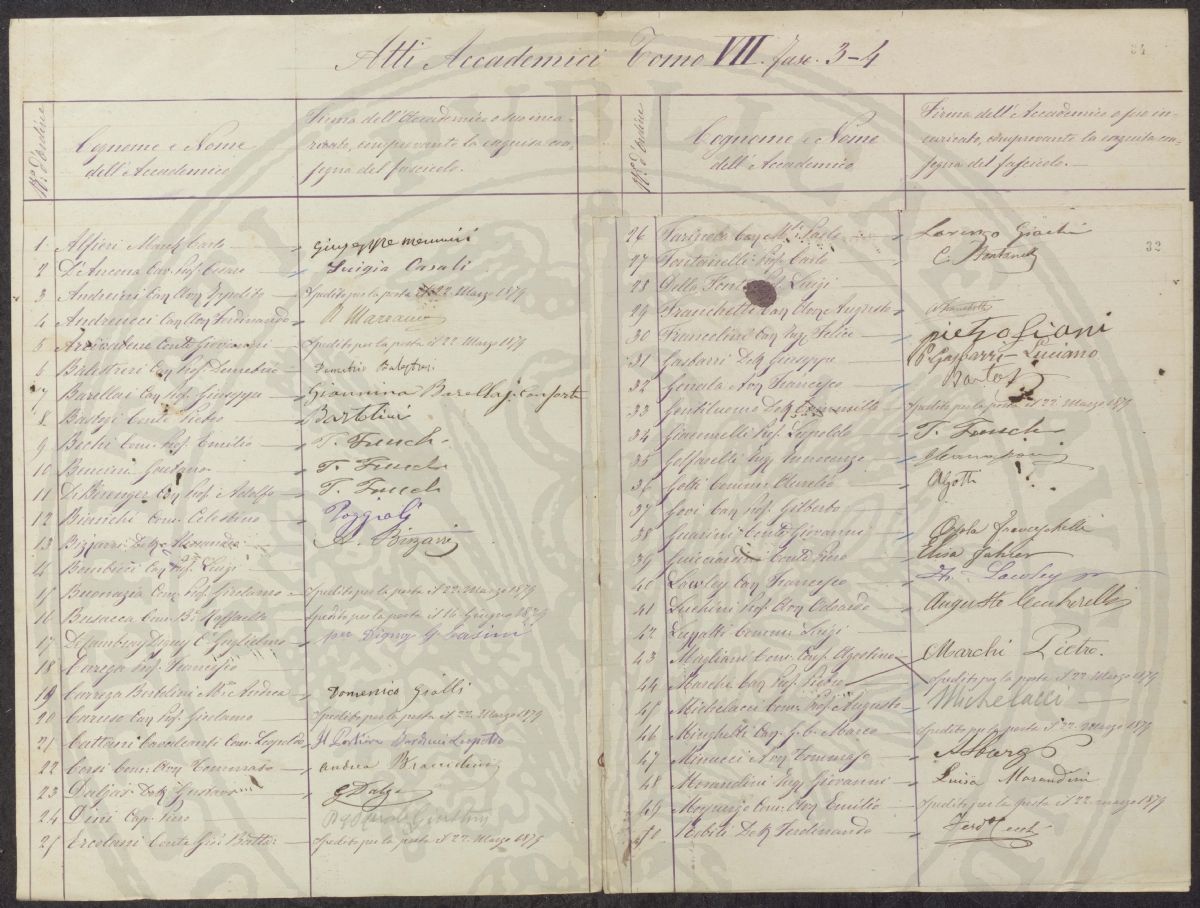 Atti Accademici Tomo VII. fasc. 3-4
34
No. d'ordine
Cognome e Nome
dell'Accademico
Firma dell'Accademico o suo inca-
ricato, comprovante la eseguita con-
segna del fascicolo.
1 Alfieri March. Carlo
Giuseppe
2 D'Ancona Cav. Prof. Cesare
Luigia Casali
3 Andreini Cav. Avv. Ippolito
Spedito per la posta il 22. Marzo 1879
4 Andreucci Cav. Avv. Ferdinando
5 Conte Giovanni
Spedito per la posta il 22 Marzo 1879
6 Balestrieri Cav. Prof. Demetrio
Demetrio Balestrieri
7 Barellai Cav. Prof. Giuseppe
Giannina Barellaj
8 Bastogi Conte Pietro
Bartolini
9 Bechi Com. Prof. Emilio
T. Fruschi
10 Bencini Gaetano
T. Fruschi
11 Di Bérenger Cav. Prof. Adolfo
T. Fruschi
12 Bianchi Com. Celestino
Poggioli
13 Bizzarri Dott. Alessandro
A. Bizzarri
14 Bombicci Cav. Prof. Luigi
15 Buonazia Cav. Prof. Girolamo
Spedito per la posta il 22 Marzo 1879
16 Busacca Com. Bne Raffaello
Spedito per la posta il 16 Giugno 1879
17 Di Cambray Digny Cte Guglielmo
per Digny G Casini
18 Carega Prof. Francesco
19 Carrega Bertolini Mse Andrea
Domenico Giolli
20 Caruso Cav. Prof. Girolamo
Spedito per la posta il 22. Marzo 1879
21 Cattani Cavalcanti Com. Leopoldo
Il Portiere Leopoldo
22 Corsi Com. Avv. Tommaso
Andrea Bracciolini
23 Dalgas Dott. Gustavo
G Dalgas
24 Dini Cap. Piero
25 Ercolani Conte Gio. Batta
Spedito per la posta il 22 Marzo 1879
No. d'ordine
Cognome e Nome
dell'Accademico
Firma dell'Accademico o suo in-
caricato, comprovante la eseguita con-
segna del fascicolo.
32
26 Farinola Cav. Mse Paolo
Lorenzo Giachi
27 Fontanelli Prof. Carlo
C. Fontanelli
28 Della Luigi
29 Franchetti Cav. Avv. Augusto
A. Franchetti
30 Francolini Cav. Ing. Felice
31 Gasbarri Dott. Giuseppe
P Gasbarri Luciano
32 Genala Avv. Francesco
33 Gentiluomo Dott. Cammillo
Spedito per la posta il 22. Marzo 1879
34 Giannelli Prof. Leopoldo
T. Fruschi
35 Golfarelli Ing. Innocenzo
36 Gotti Comm. Aurelio
AGotti
37 Govi Cav. Prof. Gilberto
38 Guarini Conte Giovanni
Orsola Franceschelli
39 Guicciardini Conte Piero
Elisa Fahrer
40 Lawley Cav. Francesco
Lawley
41 Luchini Prof. Avv. Odoardo
Augusto
42 Luzzatti Comm. Luigi
43 Magliani Com. Cons. Agostino
Marchi Pietro.
44 Marchi Cav. Prof. Pietro
Spedito per la posta il 22 Marzo 1879
45 Michelacci Com. Prof. Augusto
Michelacci
46 Minghetti Cav. G. C. Marco
Spedito per la posta il 22. Marzo 1879
47 Minucci Avv. Tommaso
48 Morandini Ing. Giovanni
Luisa Morandini
49 Morpurgo Com. Avv. Emilio
Spedito per la posta il 22 marzo 1879
50 Nobili Dott. Ferdinando